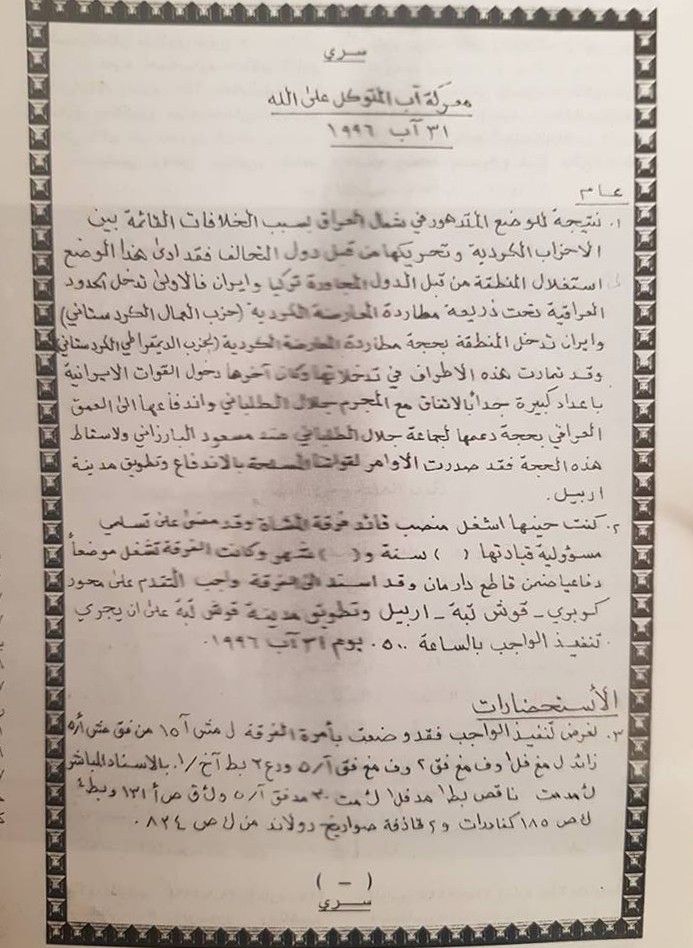 سري
معركة آب المتوكل على الله
٣١ آب ١٩٩٦
عام
١. نتيجة للوضع المتدهور في شمال العراق بسبب الخلافات القائمة بين
الاحزاب الكردية وتحريكها من قبل دول التحالف فقد ادى هذا الوضع الى
استغلال المنطقة من قبل الدول المجاورة تركيا وايران فالاولى تدخل الحدود
العراقية تحت ذريعة مطاردة المعارضة الكردية (حزب العمال الكردستاني)
وايران تدخل المنطقة بحجة مطاردة المعارضة الكردية (الحزب الديمقراطي الكردستاني)
وقد تمادت هذه الاطراف في تدخلاتها وكان آخرها دخول القوات الايرانية
باعداد كبيرة جداً بالاتفاق مع المجرم جلال الطلباني واندفاعها الى العمق
العراقي بحجة دعمها لجماعة جلال الطلباني ضد مسعود البارزاني ولاسقاط
هذه الحجة فقد صدرت الاوامر لقواتنا المسلحة بالاندفاع وتطويق مدينة
اربيل.
٢. كنت حينها اشغل منصب قائد فرقة المشاة وقد مضى على تسلمي
مسؤولية قيادتها ( ) سنة و( ) شهر وكانت الفرقة تشغل موضعاً
دفاعياً ضمن قاطع دارمان وقد اسند الى الفرقة واجب التقدم على محور
كوبري - قوش تبة - اربيل وتطويق مدينة قوش تبة على ان يجري
تنفيذ الواجب بالساعة ٠٥٠٠ يوم ٣١ آب ١٩٩٦.
الأستحضارات
٣. لغرض تنفيذ الواجب فقد وضعت بأمرة الفرقة ل مش آ ١٥ من فق مش آ/٥
زائد ل مغ فل١ وف مغ فق ٢ وف مغ فق آ/٥ ورع ٢ بط آخ /١. بالاسناد المباشر
ناقص بط١ ٣٠ مدفق آ/٥ ١٣١ وبط ٤
ك ص ١٨٥ كنادرات و٢ قاذفة صواريخ رولاند من ك ص ٨٢٤.
( - )
سري